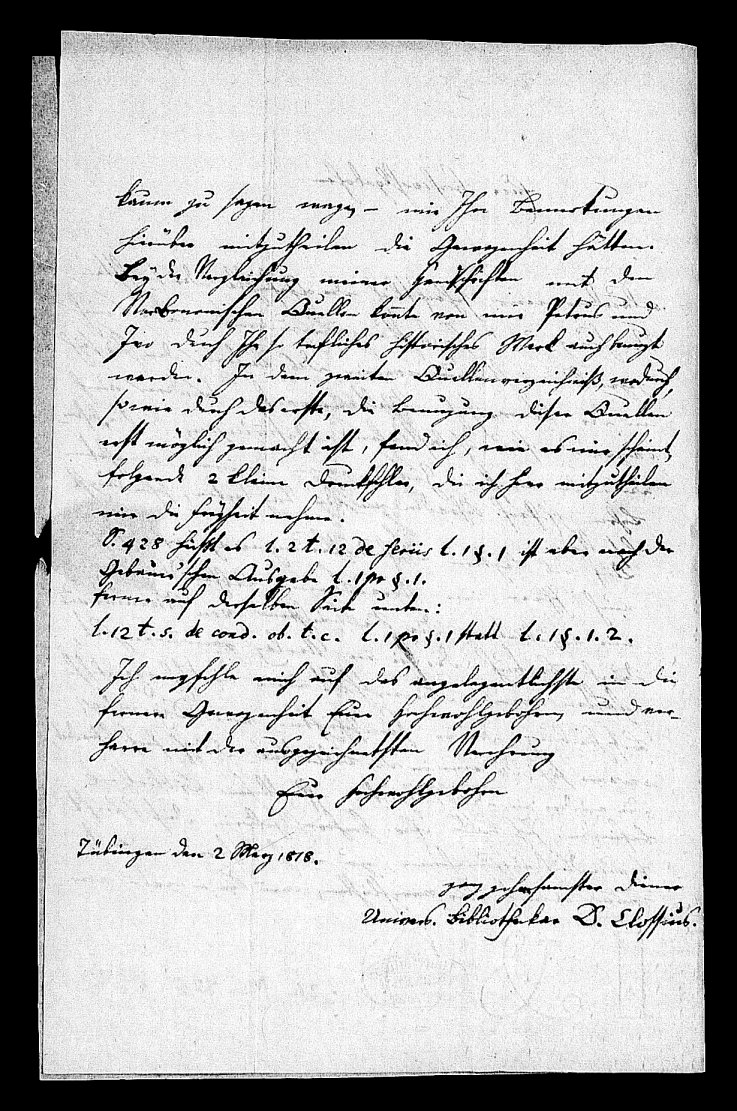 kaum zu sagen wage, – mir Ihre Bemerkungen
hierüber mitzutheilen die Gewogenheit hätten.
Bey der Vergleichung meiner Handschriften mit den
Quellen könte von mir Petrus und
Ivo durch Ihr so trefliches historisches Werk auch benuzt
werden. In dem zweiten Quellenverzeichniß, wodurch,
so wie durch das erste, die Benuzung diser Quellen
erst möglich gemacht ist, fand ich, wie es mir scheint,
folgende 2 kleine Drukfehler, die ich hier mitzutheilen
mir die Freyheit nehme.
S. 428 heißt es l. 2 t. 12 de feriis l. 1 §. 1 ist aber nach der
Gebauer'schen Ausgabe l. 1 pr §. 1.
ferner auf derselben Seite unten:
l. 12 t. 5. de cond. ob. t. c. l. 1 pr §. 1 statt l. 1 §. 1. 2.
Ich empfehle mich auf das angelegentlichste in die
fernere Gewogenheit Euer Hochwohlgebohren, und ver-
harre mit der ausgezeichnetsten Verehrung
Euer Hochwohlgebohren
Tübingen den 2 Merz 1818.
ganz gehorsamster Diener
Univers. Bibliothekar D. Clossius.